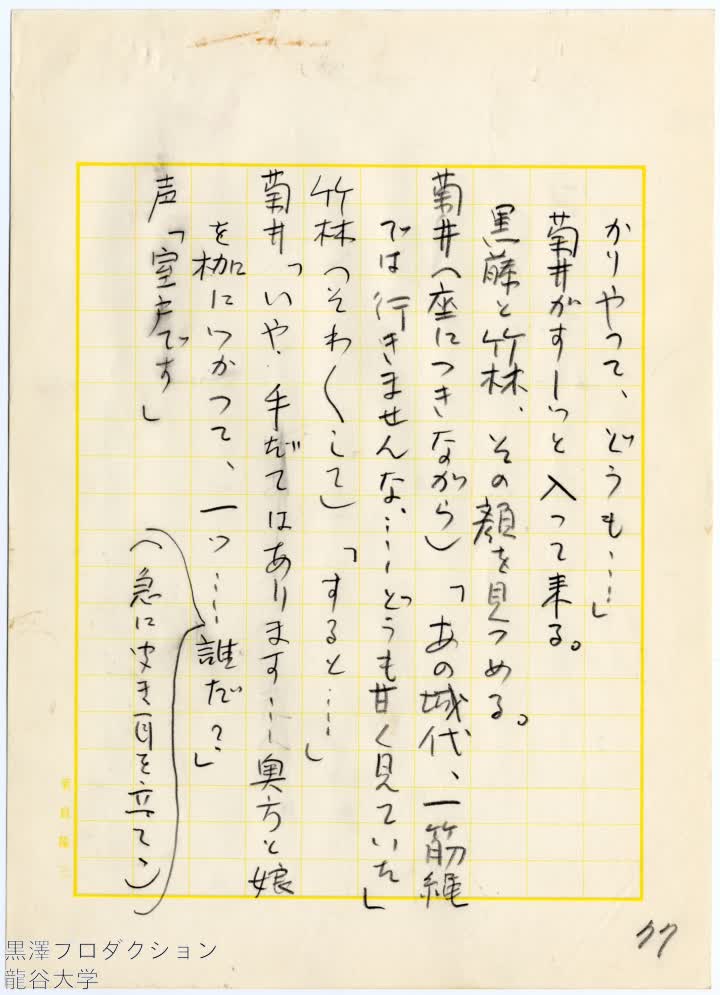 かりやつて、どうも……」
菊井がすーっと入って来る。
黒藤と竹林、その顔を見つめる。
菊井(座につきながら)「あの城代、一筋縄
では行きませんな、……どうも甘く見ていた」
竹林(そわ〱して)「すると……」
菊井「いや、手だてはあります……奥方と娘
を枷につかつて、一つ……誰だ?」
(急に聞き耳を立て、)
声「室戸です」
77
菊島隆三
黒澤プロダクション
龍谷大学